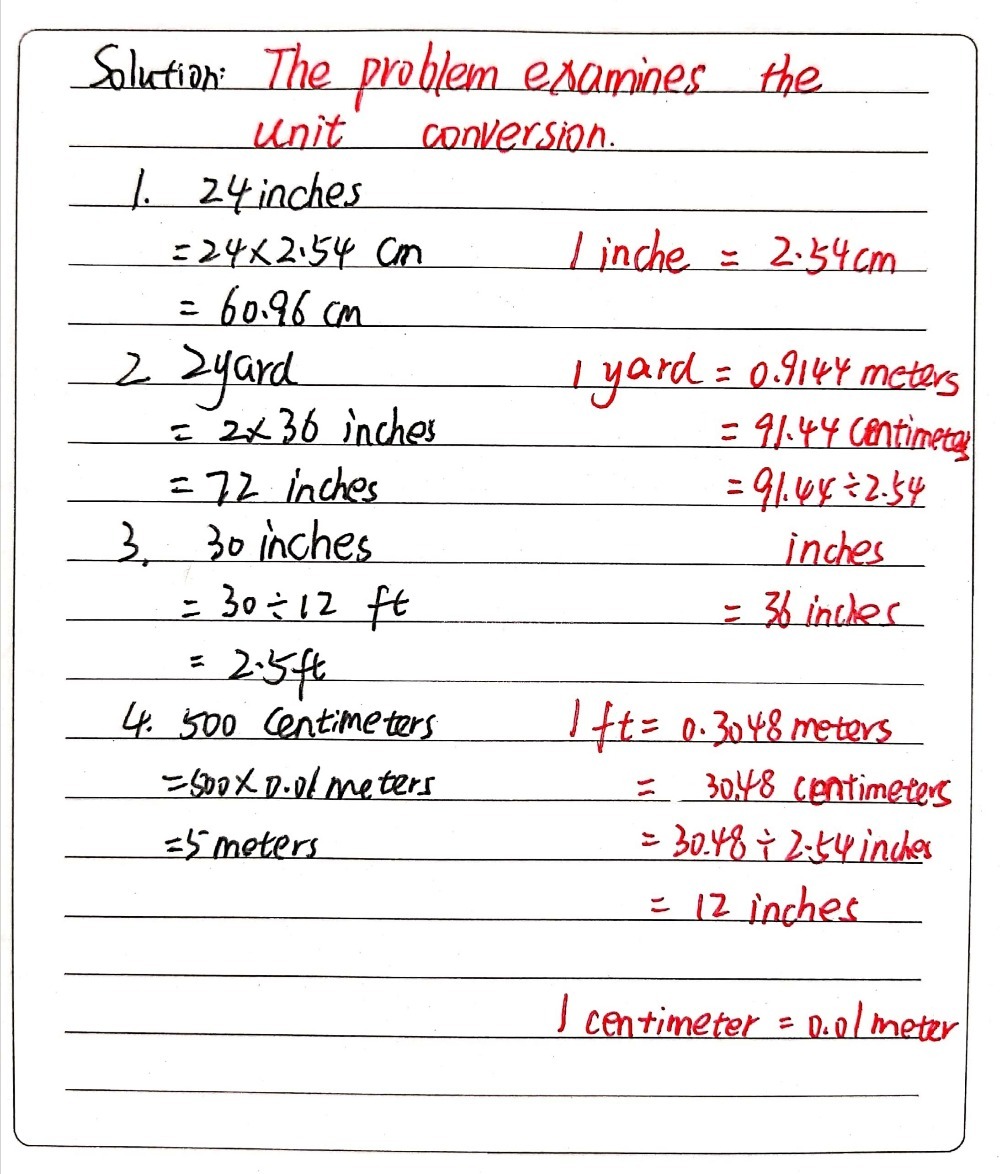 Solution: The problem examines the
unit conversion.
1. 24 inches
= 24×2.54 cm 1 inche = 2.54cm
= 60.96 cm
2 2yard 1 yard = 0.9144 meters
= 2×36 inches = 91.44 centimeters
= 72 inches = 91.44÷2.54
3. 30 inches inches
= 30÷12 ft = 36 inches
= 2.5ft
4. 500 centimeters 1 ft = 0.3048 meters
=500×0.01 meters = 30.48 centimeters
=5 meters = 30.48 ÷ 2.54 inches
= 12 inches
1 centimeter = 0.01 meter